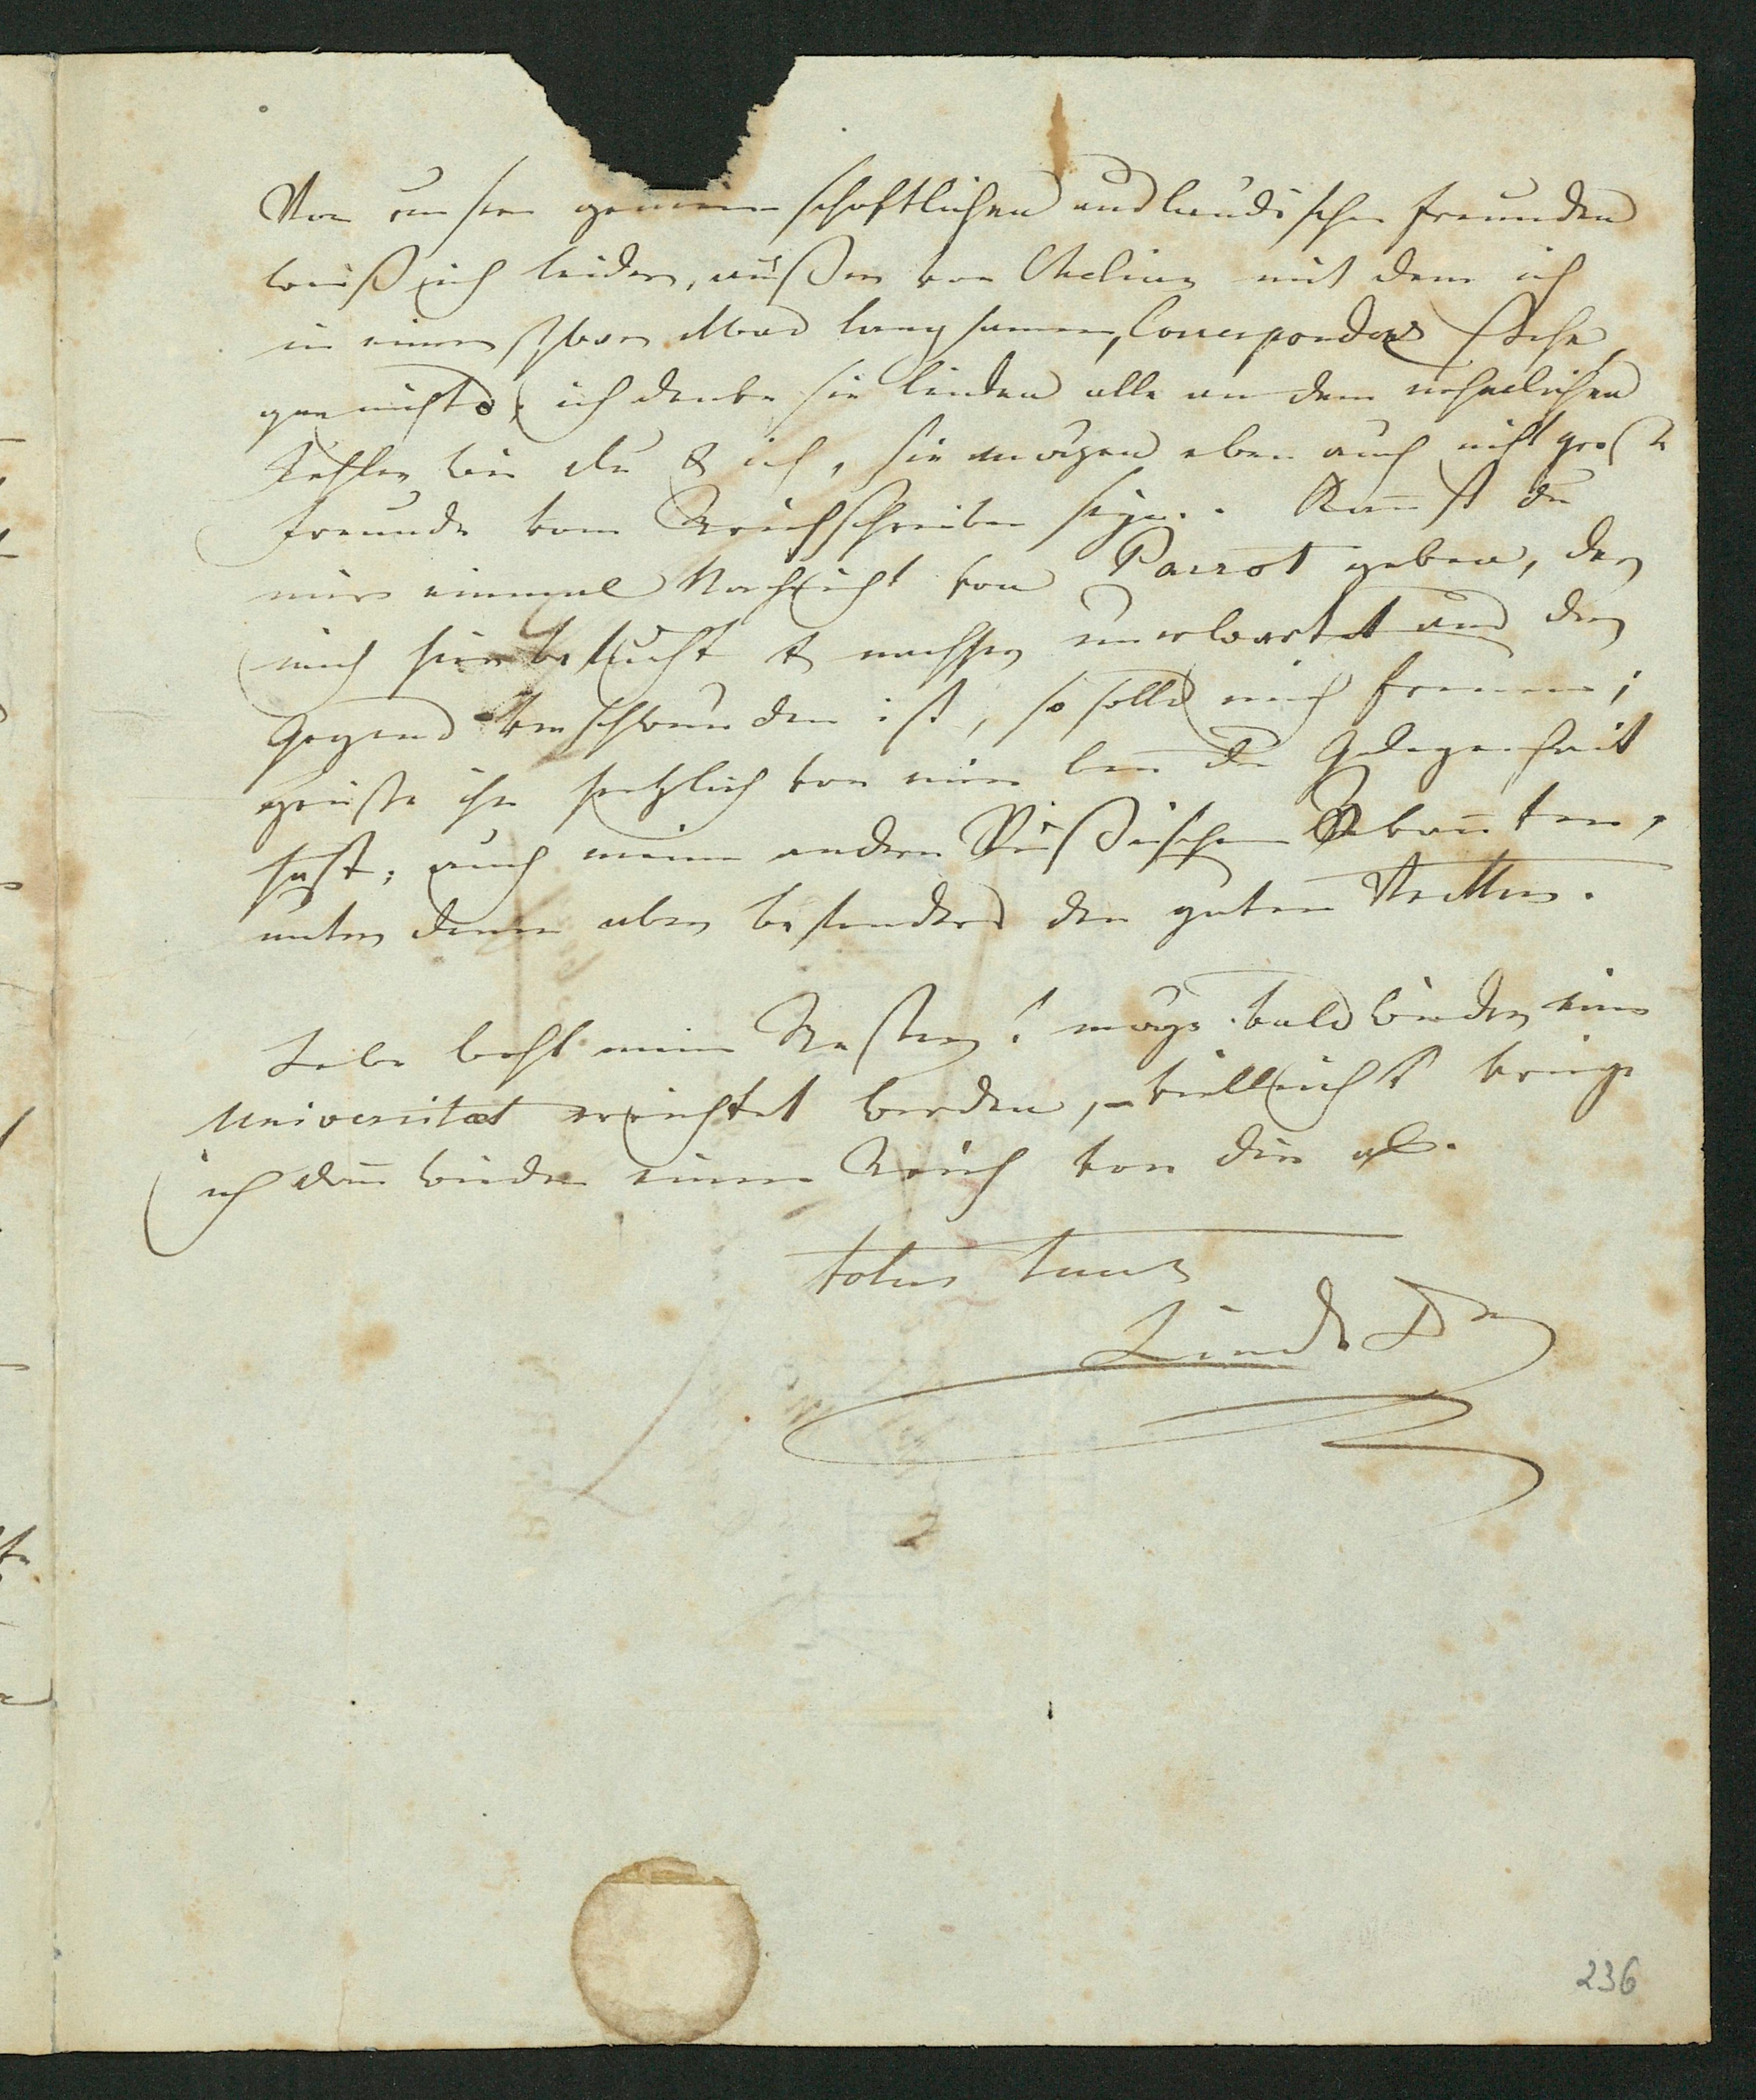 Von unsern gemeinschaftlichen ausländischen Freunden
weiß ich leider, außer von Chelius mit dem ich
in einer etwas langsamen Correspondenz stehe,
gar nichts, ich denke sie leiden alle an dem nehmlichen
Fehler wie du & ich, sie mögen eben auch nicht große
Freunde vom Briefschreiben seyn. Kan̄st du
mir einmal Nachricht von Parrot geben, der
mich hier besucht & nachher unerwartet aus der
Gegend verschwunden ist, so solls mich freuen;
grüße ihn herzlich von mir wen̄ du Gelegenheit
hast, auch meine andern Rußischen Bekan̄ten,
unter denen aber besonders den guten
Lebe wohl mein Bester! möge bald wieder eine
Universitæt errichtet werden, – vielleicht kriege
ich dan̄ wieder einen Brief von dir ab.
totus tuus
Linde Dr
236